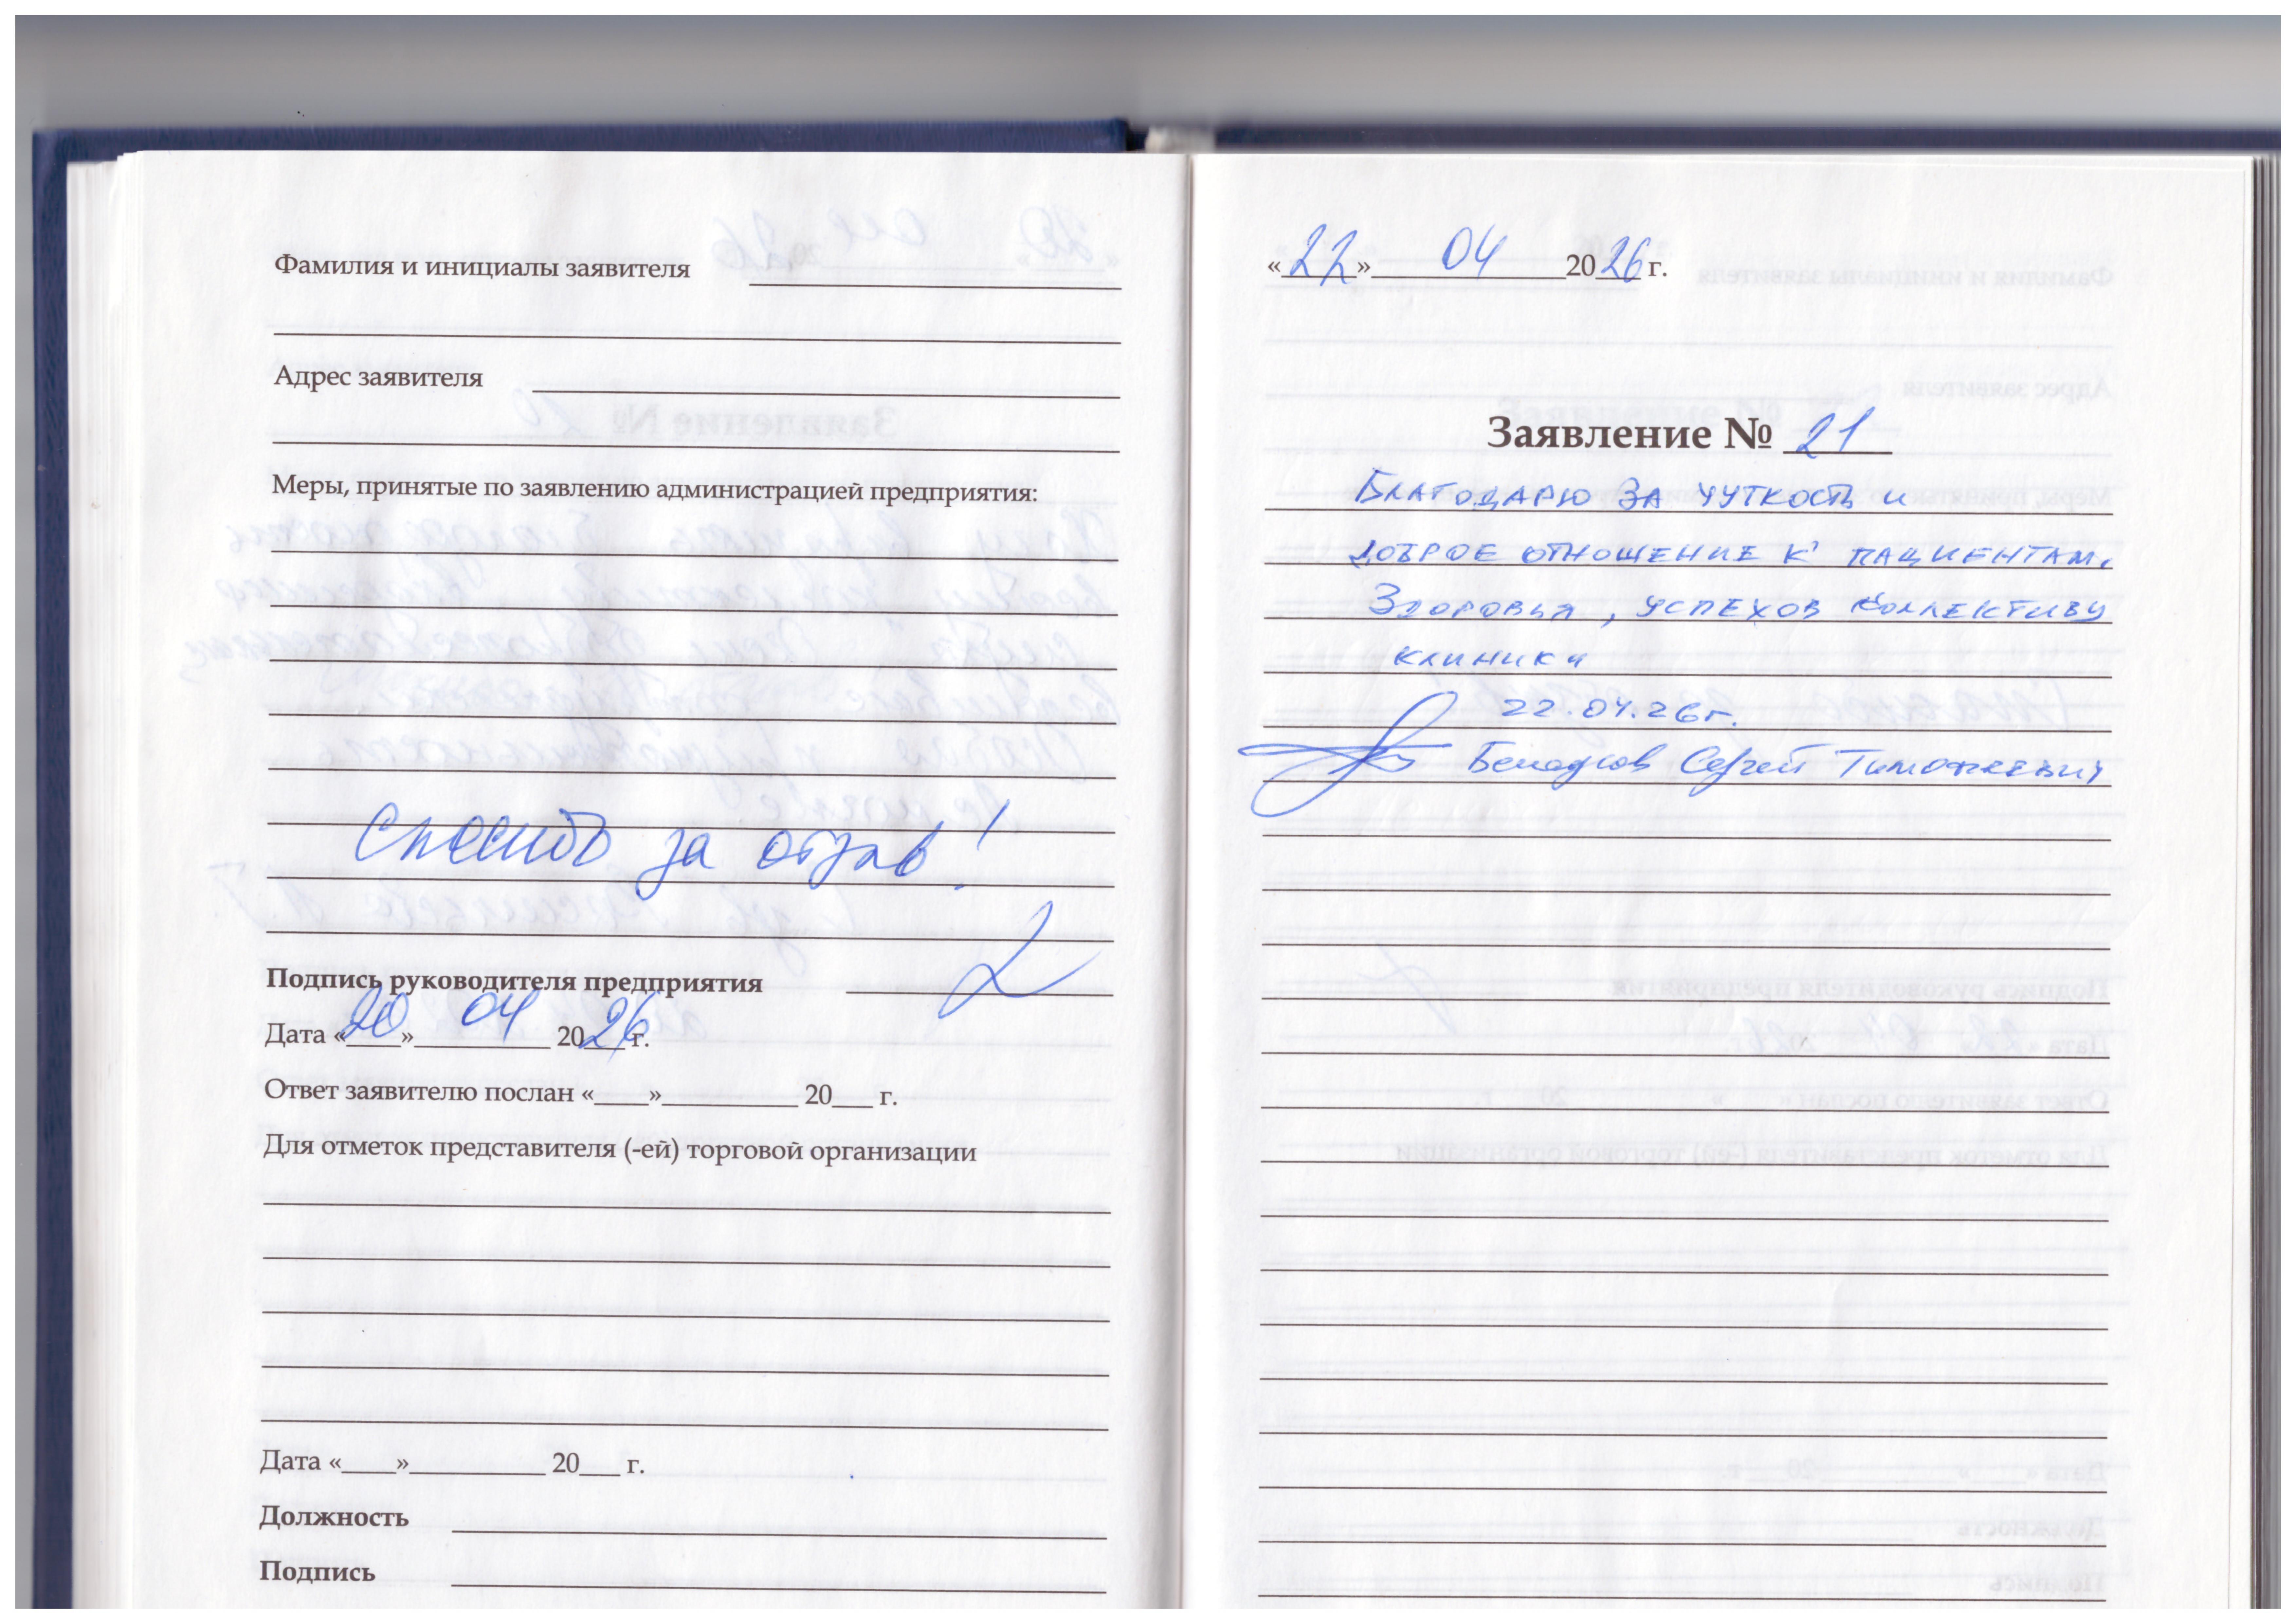 Фамилия и инициалы заявителя
Адрес заявителя
Меры, принятые по заявлению администрацией предприятия:
Спасибо за отзыв!
Подпись руководителя предприятия
Дата «20» 04 2026 г.
Ответ заявителю послан «____»__________ 20___ г.
Для отметок представителя (-ей) торговой организации
Дата «____»__________ 20___ г.
Должность
Подпись
«22» 04 2026 г.
Заявление № 21
Благодарю за чуткость и
доброе отношение к пациентам.
Здоровья, успехов коллективу
клиники
22.04.26г.
Сергей Тимофеевич